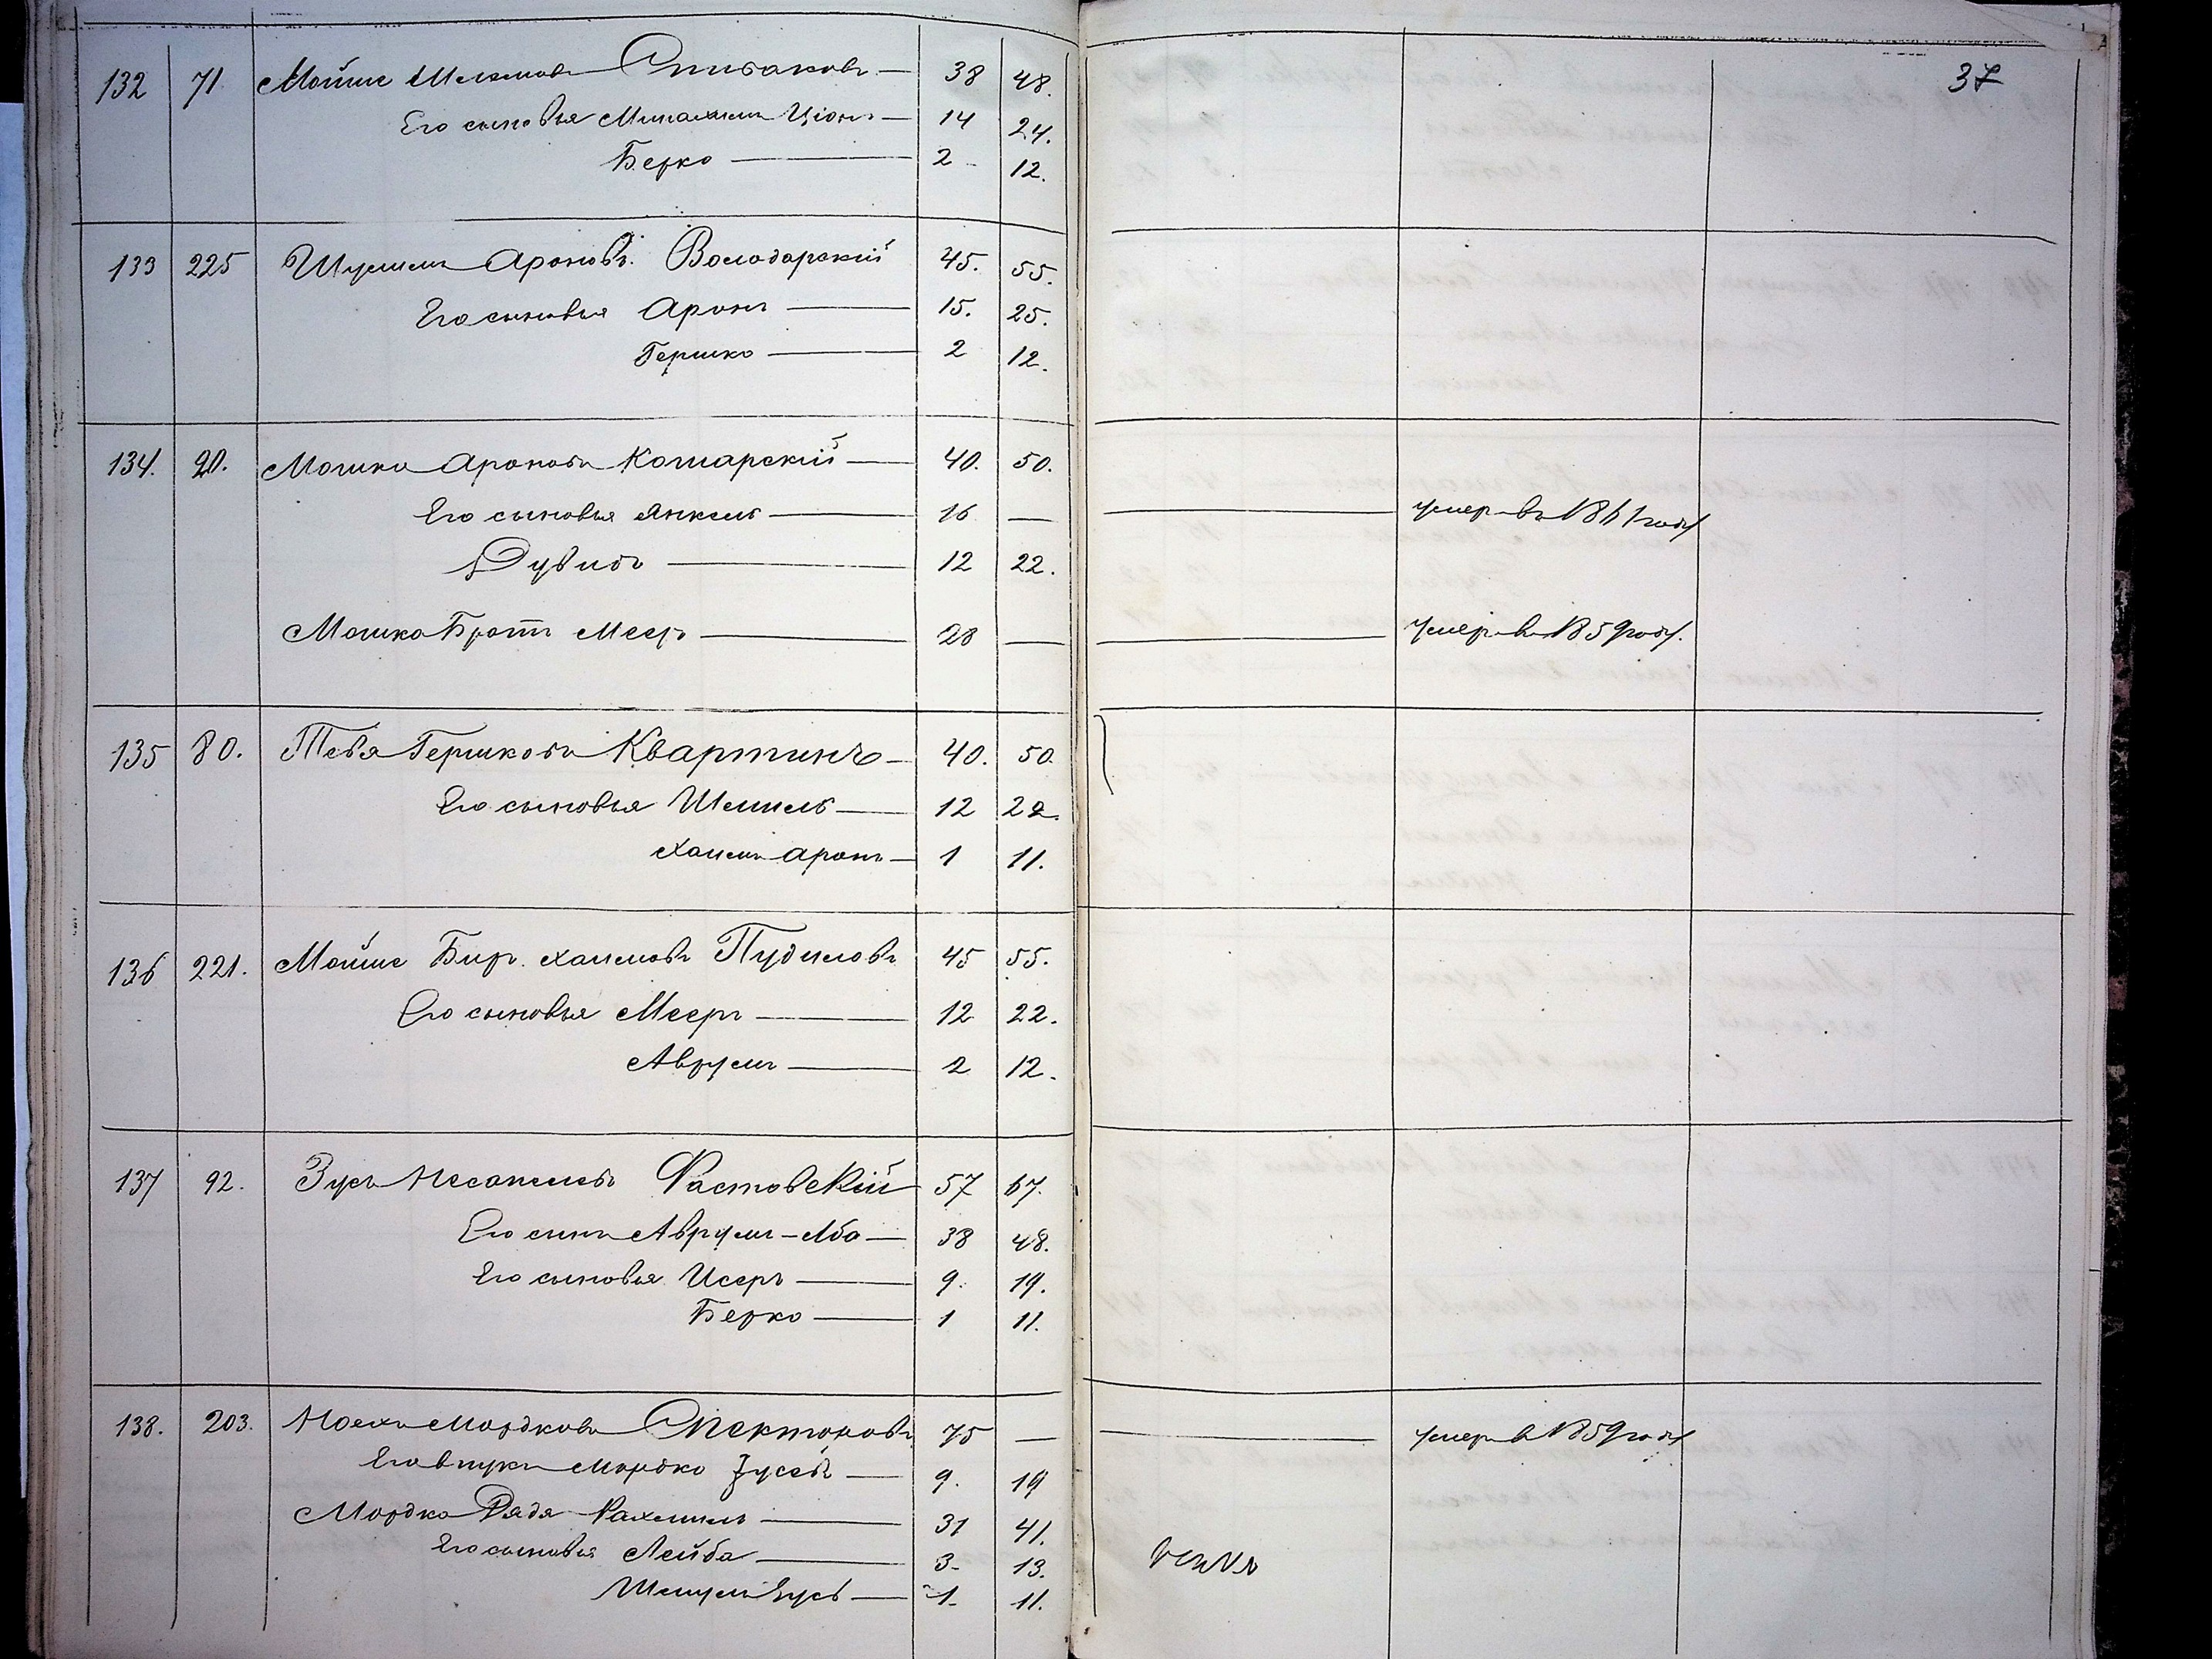 37
132 71 Мойше Шлемовъ Спиваковъ 38 48.
Его сыновья Минахим Ціонъ 14 24.
Берко 2 12.
133 225 Шулимъ Ароновъ Володарскій 45. 55.
Его сыновья Аронъ 15. 25.
Гершко 2 12.
134. 20. Мошко Ароновъ Комарскій 40. 50.
Его сыновья Янкель 16 — умеръ въ 1861 году
Дувидъ 12 22.
Мошка Братъ Мееръ 28 — умеръ въ 1859 году.
135 80. Тевя Гершковъ Квартинъ 40. 50
Его сыновья Шмиль 12 22.
Хаимъ Аронъ 1 11.
136 221. Мойше Бер. Хаимовъ Пудиловъ 45 55.
Его сыновья Мееръ 12 22.
Аврумъ 2 12.
137 92. Зусь Фастовскій 57 67.
Его сынъ Аврумъ-Аба 38 48.
Его сыновья Исеръ 9. 19.
Берко 1 11.
138. 203. Мордковъ Спекторовъ 75 — умеръ в 1859 году
Его внукъ Мордко Зусевъ 9. 19
Мордка Дядя Рахмиль 31 41.
Его сыновья Лейба 3 13.
Шмуль Зусь 1 11.